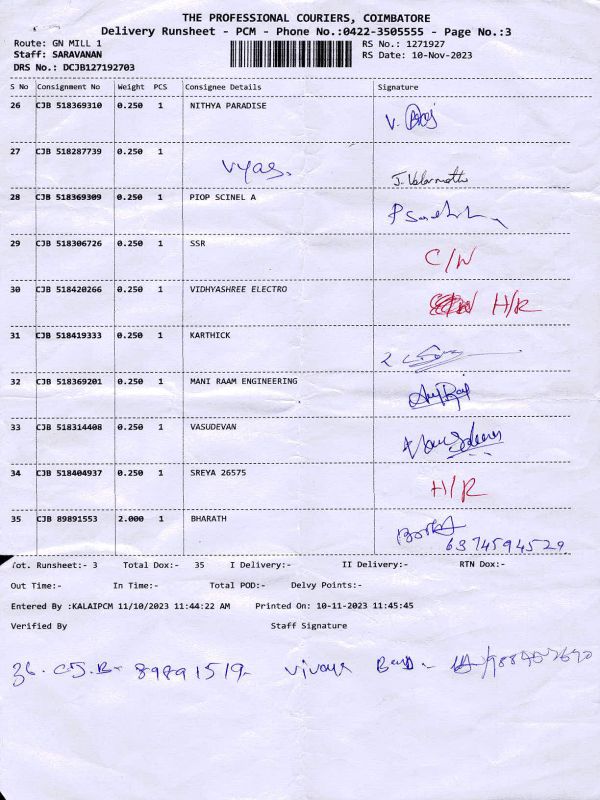 THE PROFESSIONAL COURIERS, COIMBATORE
Delivery Runsheet - PCM - Phone No.:0422-3505555 - Page No.:3
Route: GN MILL 1 RS No.: 1271927
Staff: SARAVANAN RS Date: 10-Nov-2023
DRS No.: DCJB127192703
S No Consignment No Weight PCS Consignee Details Signature
26 CJB 518369310 0.250 1 NITHYA PARADISE V.
27 CJB 518287739 0.250 1 Vyas. J. Valarmathi
28 CJB 518369309 0.250 1 PIOP SCINEL A
29 CJB 518306726 0.250 1 SSR C/W
30 CJB 518420266 0.250 1 VIDHYASHREE ELECTRO H/R
31 CJB 518419333 0.250 1 KARTHICK
32 CJB 518369201 0.250 1 MANI RAAM ENGINEERING
33 CJB 518314408 0.250 1 VASUDEVAN
34 CJB 518404937 0.250 1 SREYA 26575 H/R
35 CJB 89891553 2.000 1 BHARATH
6374594529
Tot. Runsheet:- 3 Total Dox:- 35 I Delivery:- II Delivery:- RTN Dox:-
Out Time:- In Time:- Total POD:- Delvy Points:-
Entered By :KALAIPCM 11/10/2023 11:44:22 AM Printed On: 10-11-2023 11:45:45
Verified By Staff Signature
36. CJB- 89891519-